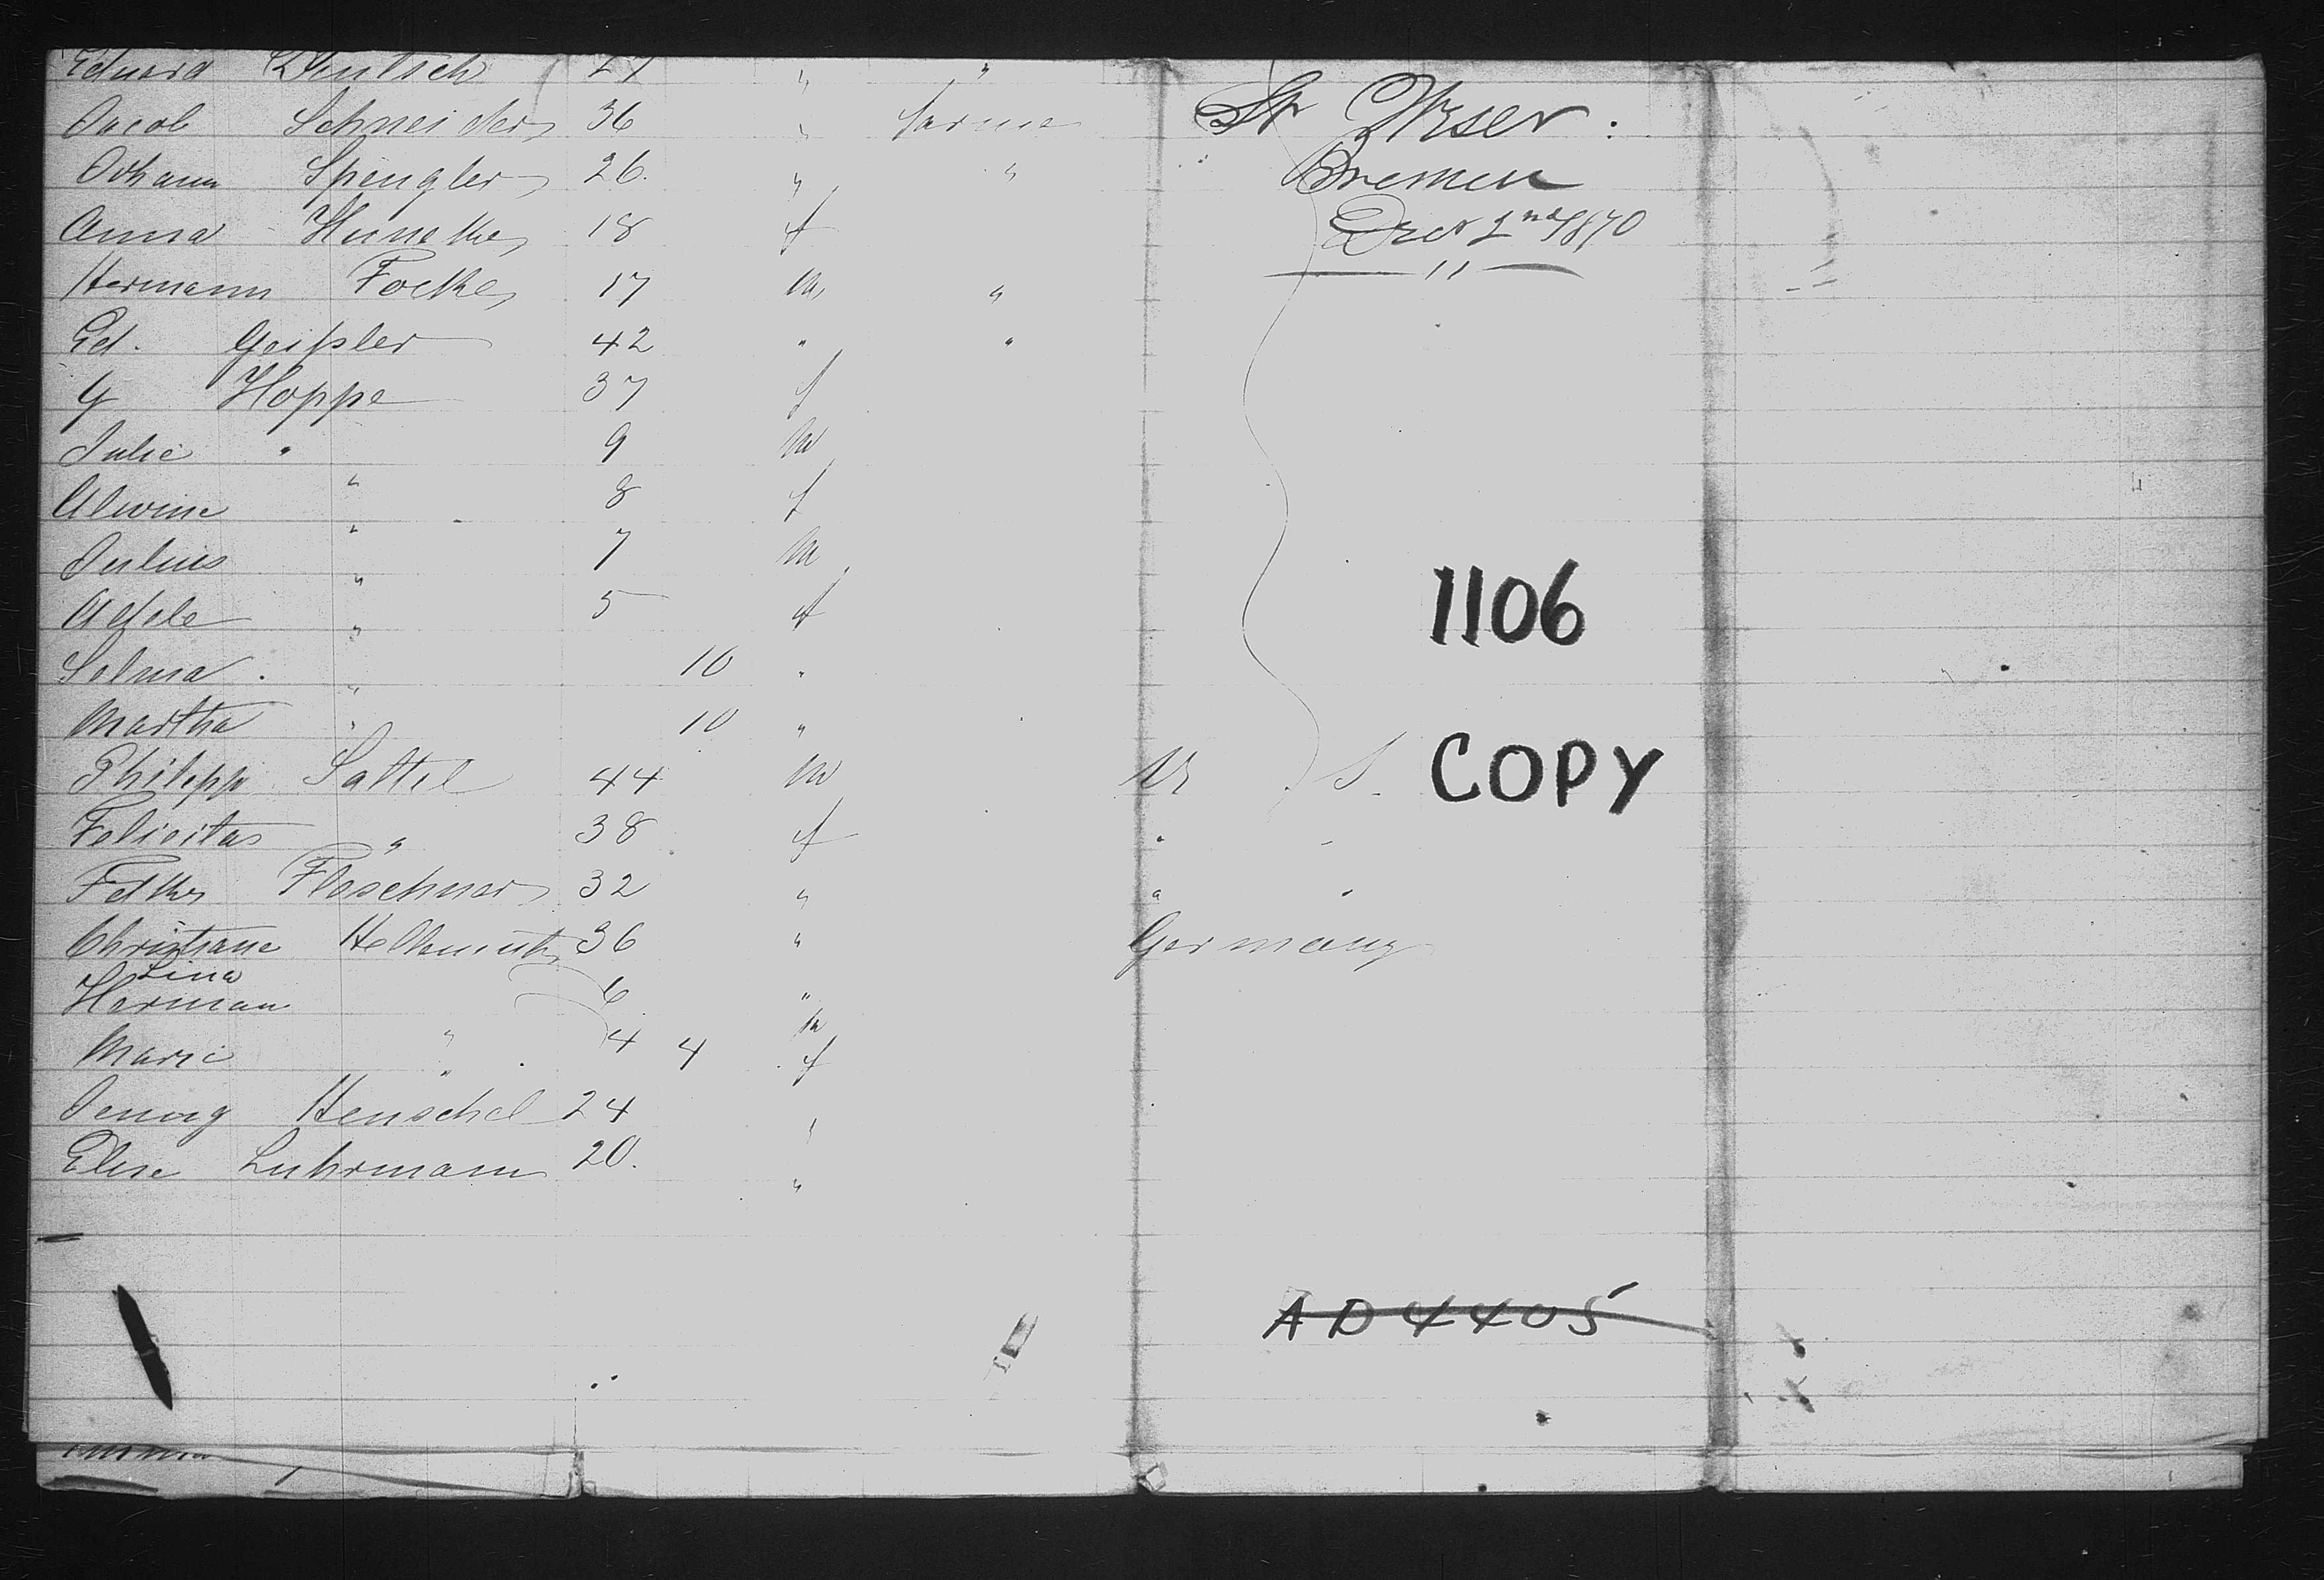 Eduard Deutsch 27 " "
Jacob Schneider 36 " farmer
Johann Spengler 26. " "
Anna Huneke 18 f
Hermann Focke 17 m "
Ed. Geißler 42 " "
G Hoppe 37 f
Julie " 9 m
Alwine " 8 f
Julius " 7 m
Adele " 5 f
Selma . " 10 "
Martha " 10 "
Philipp Sattel 44 m U. S.
Felicitas " 38 f " "
Fleschner 32 " " "
Christiane Hellmuth 36 " Germany
Lina 6 "
Herman " 4 m
Marie " 4 f
Jenny Henschel 24 "
Elise Luhrmann 20. "
St Weser :
Bremen
Decr 2nd 1870
"
1106
COPY
AD4405